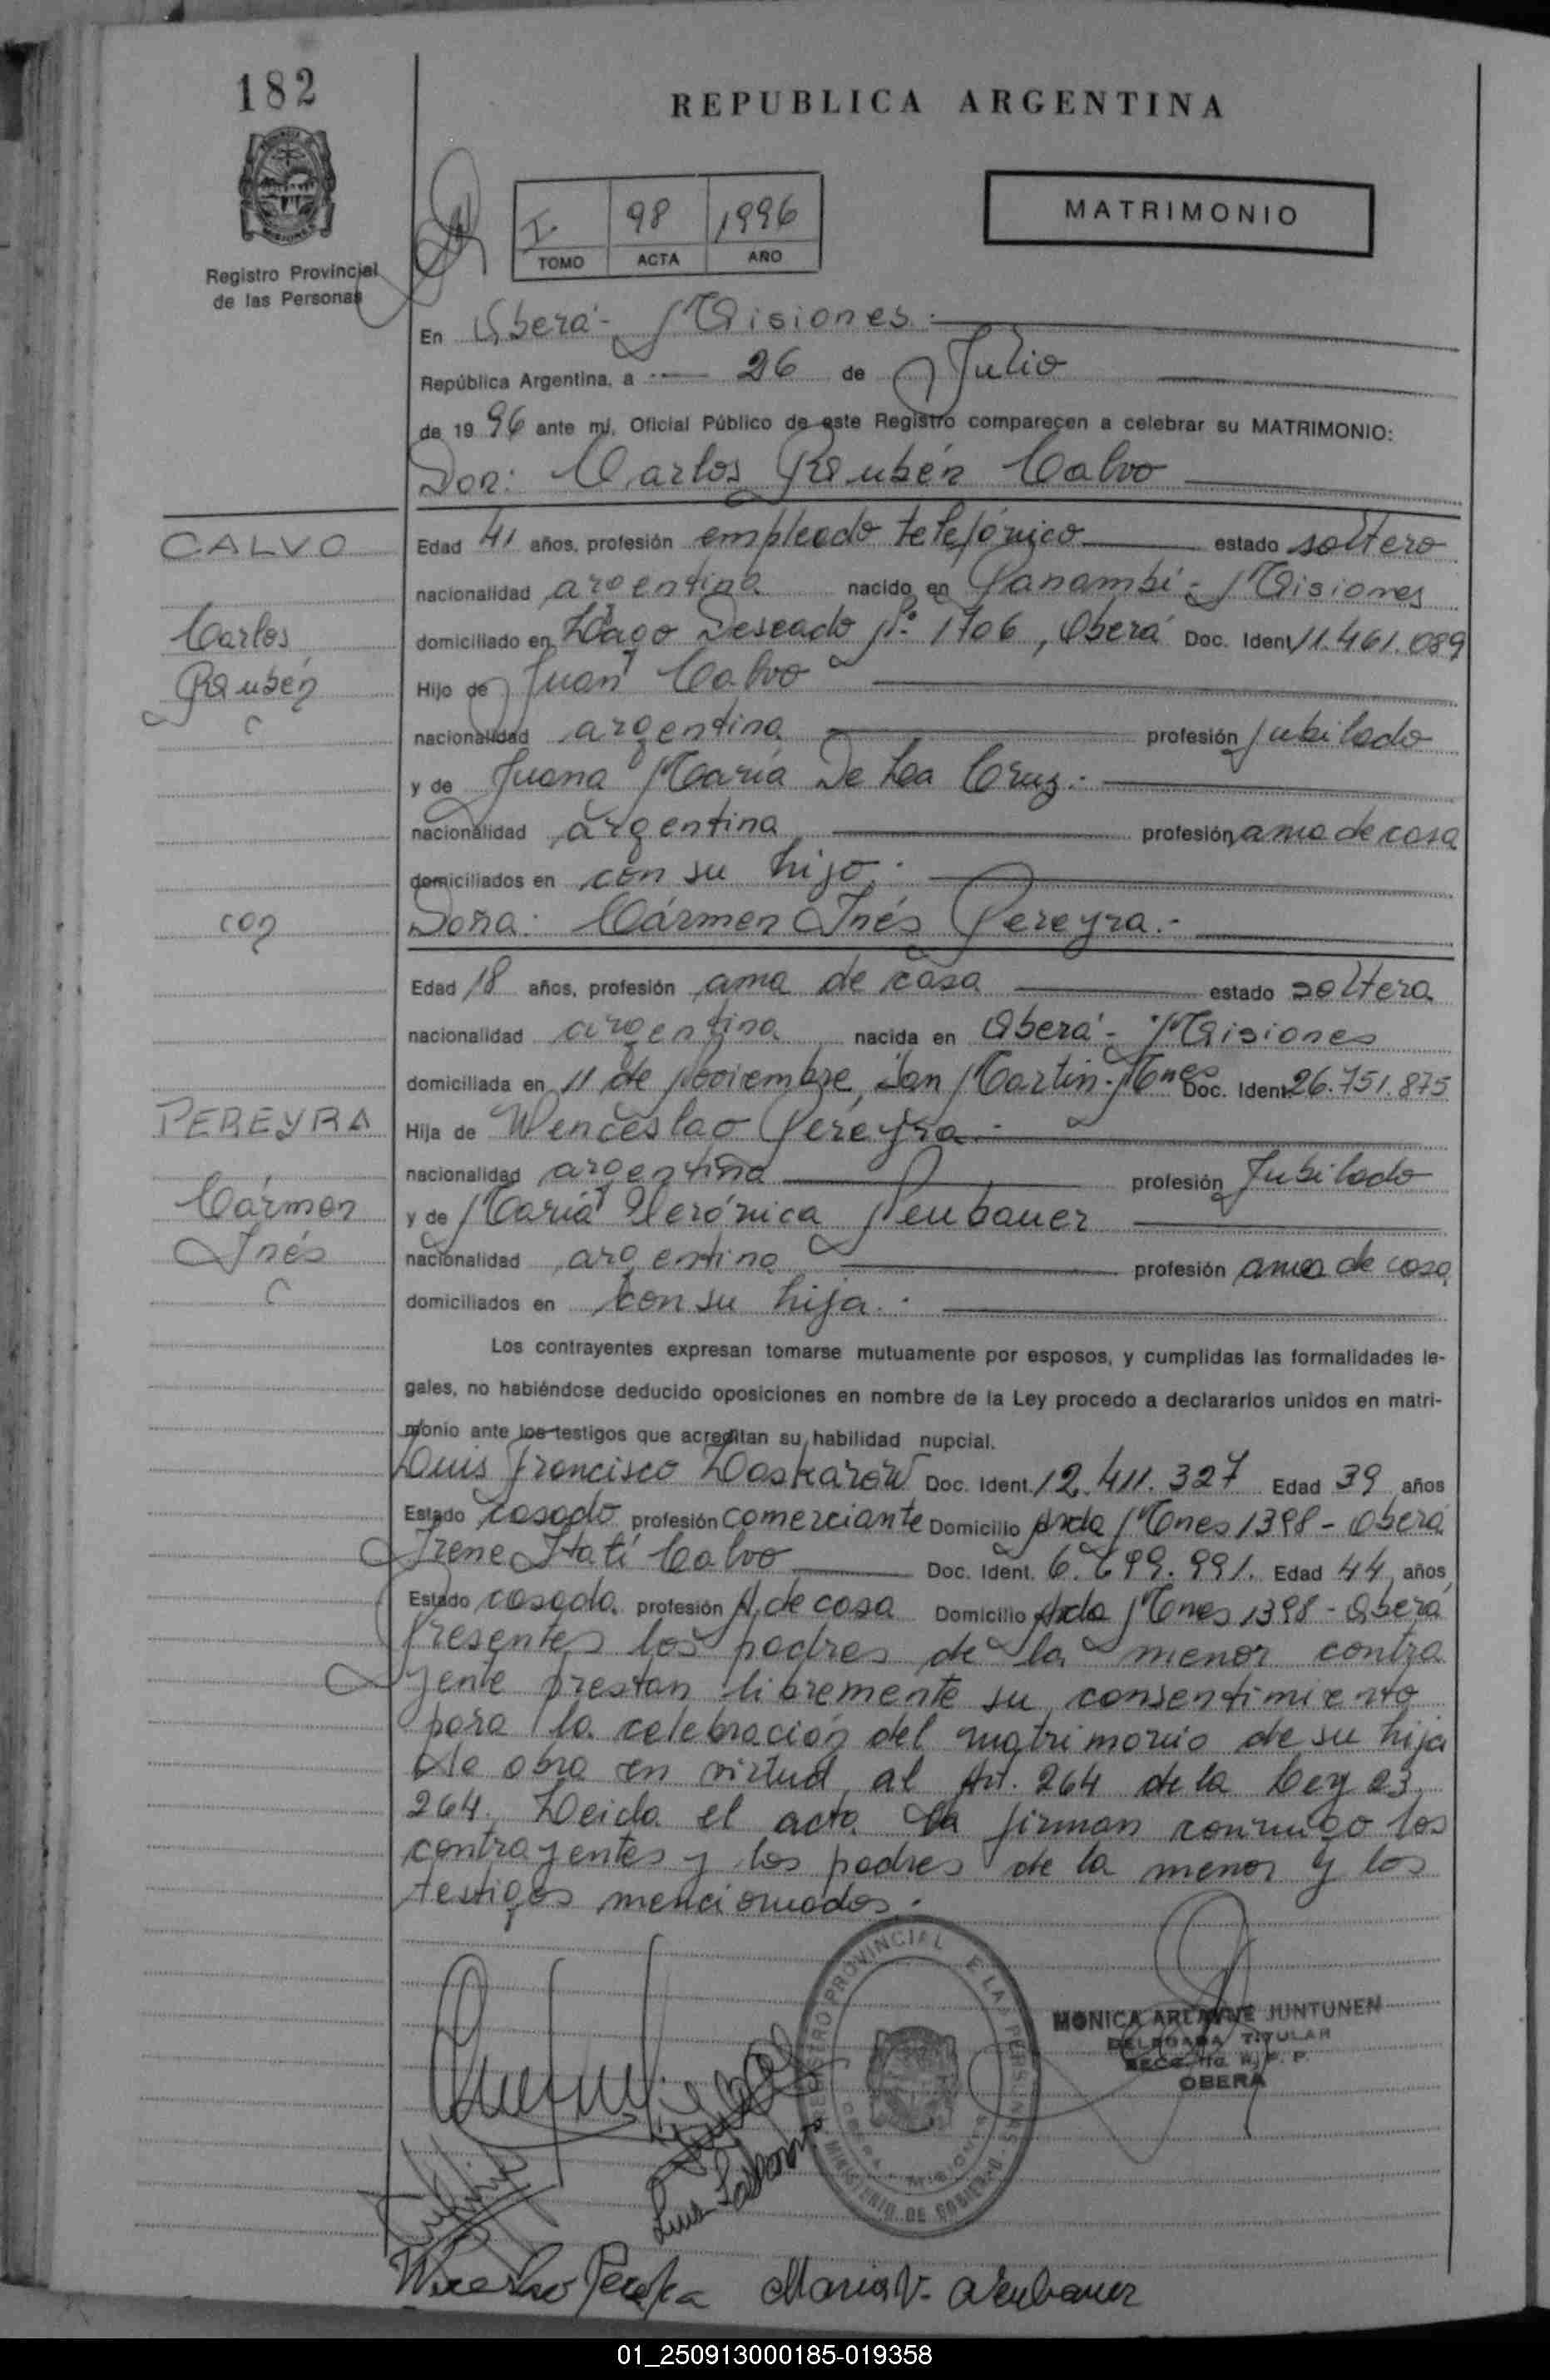 182
REPUBLICA ARGENTINA
Registro Provincial
de las Personas
I 98 1996
TOMO ACTA AÑO
MATRIMONIO
En Oberá - Misiones.
República Argentina, a 26 de Julio
de 1996 ante mí, Oficial Público de este Registro comparecen a celebrar su MATRIMONIO:
Don: Carlos Rubén Calvo
CALVO
Carlos
Rubén
Edad 41 años, profesión empleado telefónico estado soltero
nacionalidad argentina nacido en Panambí - Misiones
domiciliado en Lago Deseado Nº 1706, Oberá Doc. Ident 11.461.089
Hijo de Juan Calvo
nacionalidad argentina profesión Jubilado
y de Juana María De La Cruz.-
nacionalidad argentina profesión ama de casa
domiciliados en con su hijo.-
con
Doña: Cármen Inés Pereyra.-
Edad 18 años, profesión ama de casa estado soltera
nacionalidad argentina nacida en Oberá - Misiones
domiciliada en 11 de Noviembre, San Martín - Mnes Doc. Ident. 26.751.875
PEREYRA
Cármen
Inés
Hija de Wenceslao Pereyra.-
nacionalidad argentina profesión Jubilado
y de María Verónica Neubauer
nacionalidad argentina profesión ama de casa
domiciliados en con su hija.-
Los contrayentes expresan tomarse mutuamente por esposos, y cumplidas las formalidades le-
gales, no habiéndose deducido oposiciones en nombre de la Ley procedo a declararlos unidos en matri-
monio ante los testigos que acreditan su habilidad nupcial.
Luis Francisco Doc. Ident. 12.411.327 Edad 39 años
Estado casado profesión comerciante Domicilio Avda Mnes 1398 - Oberá
Irene Itatí Calvo Doc. Ident. 6.699.991. Edad 44 años
Estado casada profesión A. de casa Domicilio Avda Mnes 1398 - Oberá
Presentes los padres de la menor contra
yente prestan libremente su consentimiento
para la celebración del matrimonio de su hija
Se obra en virtud al Art. 264 de la Ley 23.
264. Leida el acta la firman conmigo los
contrayentes y los padres de la menor y los
testigos mencionados.-
REGISTRO PROVINCIAL DE LAS PERSONAS
MINISTERIO DE GOBIERNO
MONICA ARLAYNE JUNTUNEN
DELEGADA TITULAR
OBERA
Wenceslao Pereyra Maria V. Neubauer
01_250913000185-019358